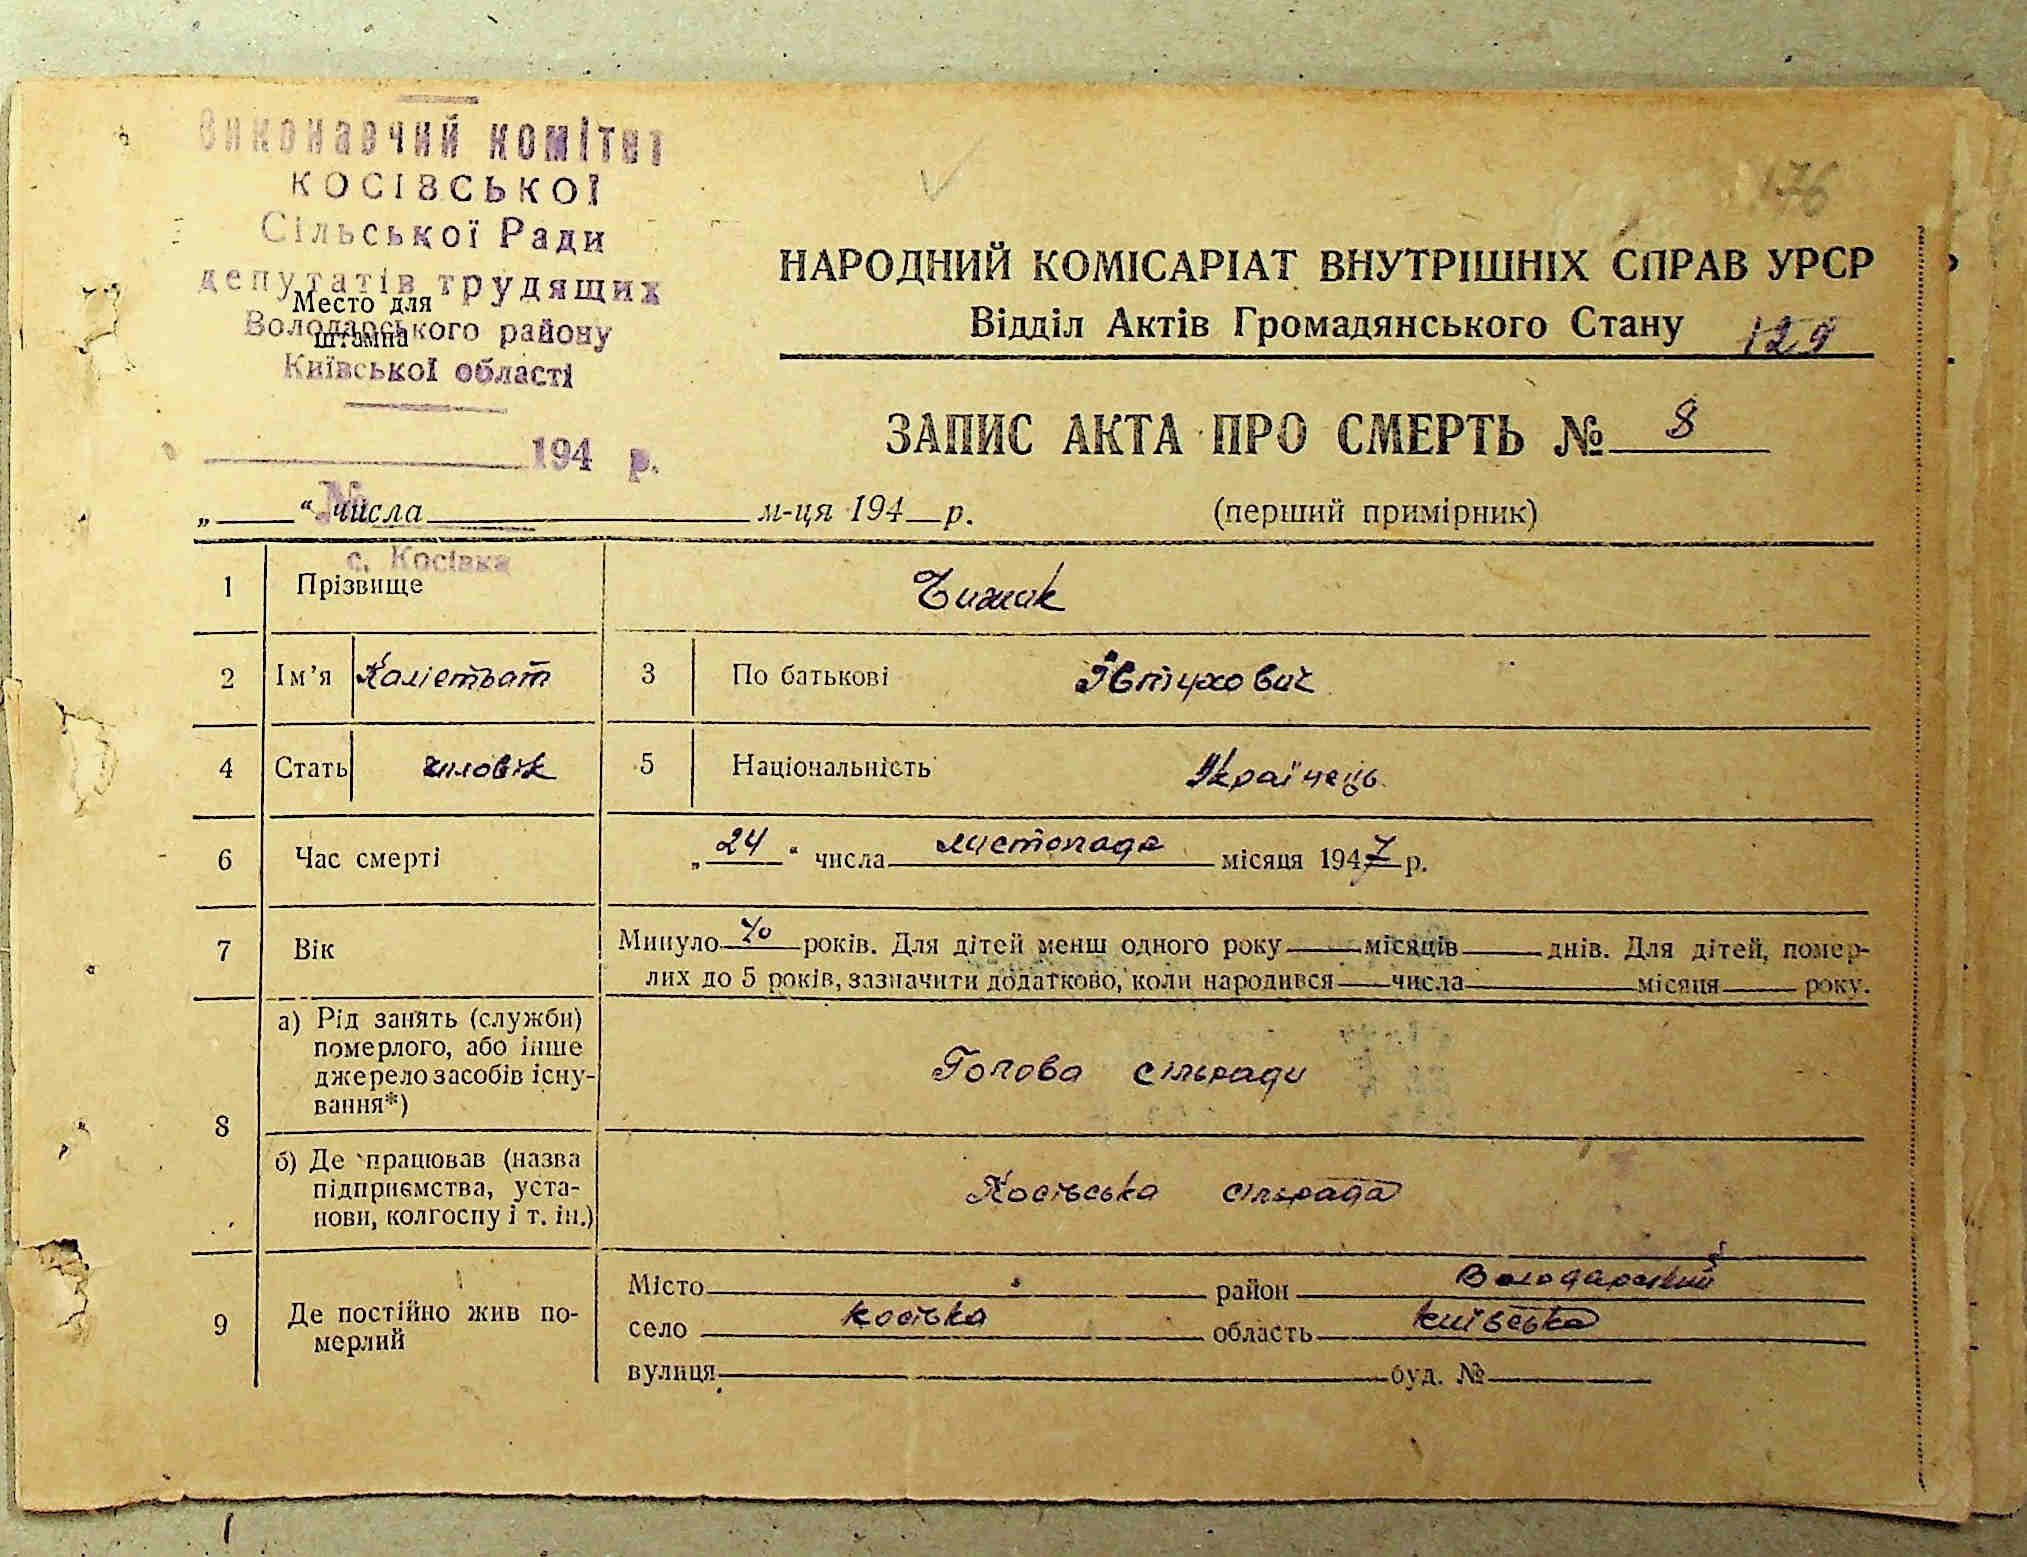 Виконавчий комітет
КОСІВСЬКОЇ
Сільської Ради
депутатів трудящих
Место для
Володарського району
штампа
Київської області
194 р.
№
с. Косівка
176
НАРОДНИЙ КОМІСАРІАТ ВНУТРІШНІХ СПРАВ УРСР
Відділ Актів Громадянського Стану
ЗАПИС АКТА ПРО СМЕРТЬ № 8
„ “ числа м-ця 194 р. (перший примірник)
1 Прізвище Чижик
2 Ім'я Калістрат 3 По батькові Явтухович
4 Стать чиловік 5 Національність Українець
6 Час смерті „24“ числа листопада місяця 1947 р.
7 Вік Минуло 70 років. Для дітей менш одного року місяців днів. Для дітей, помер-
лих до 5 років, зазначити додатково, коли народився числа місяця року.
8 а) Рід занять (служби)
померлого, або інше
джерело засобів існу-
вання*)
Голова сільради
б) Де працював (назва
підприємства, уста-
нови, колгоспу і т. ін.)
Косівська сільрада
9 Де постійно жив по-
мерлий
Місто район Володарський
село Косівка область Київська
вулиця буд. №